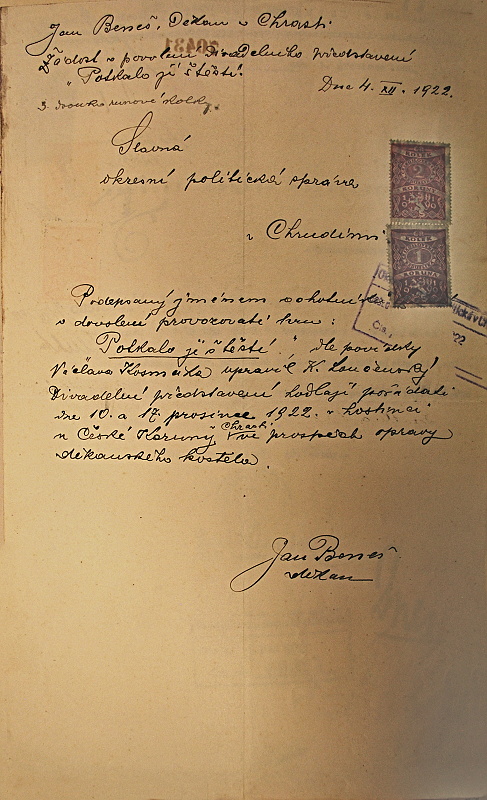 Jan Beneš, Děkan v Chrasti
Žádost o povolení divadelního představení
„Potkalo jí štěstí."
Dne 4. XII. 1922.
3. kolky.
Slavná
okresní politická správa
v Chrudimi
KOLEK
2
KORUNY
KOLEK
1
KORUNA
Podepsaný jménem ochotníků
o dovolení provozovati hru:
„Potkalo jí štěstí." dle povídky
Václava Kosmáka upravil K.
Divadelní představení hodlají pořádati
dne 10. a 17. prosince 1922. v hostinci
u České Koruny v Chrasti ve prospěch opravy
děkanského kostela.
Jan Beneš
děkan